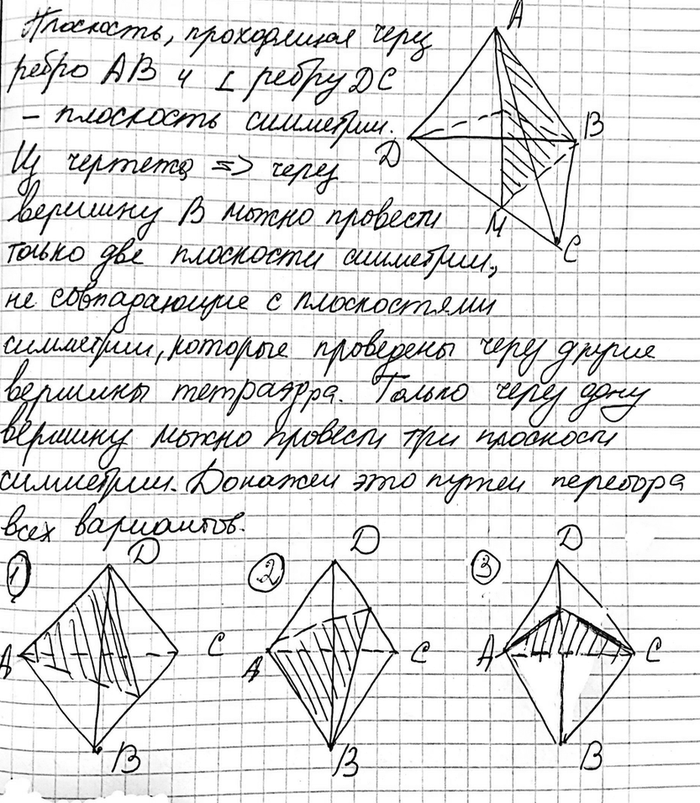 Плоскость, проходящая через
ребро AB и ⊥ ребру DC
– плоскость симметрии.
Из чертежа => через
вершину B можно провести
только две плоскости симметрии,
не совпадающие с плоскостями
симметрии, которые проведены через другие
вершины тетраэдра. Только через одну
вершину можно провести три плоскости
симметрии. Докажем это путем перебора
всех вариантов.
A
D
B
M
C
1
D
A
C
B
2
D
A
C
B
3
D
A
C
B